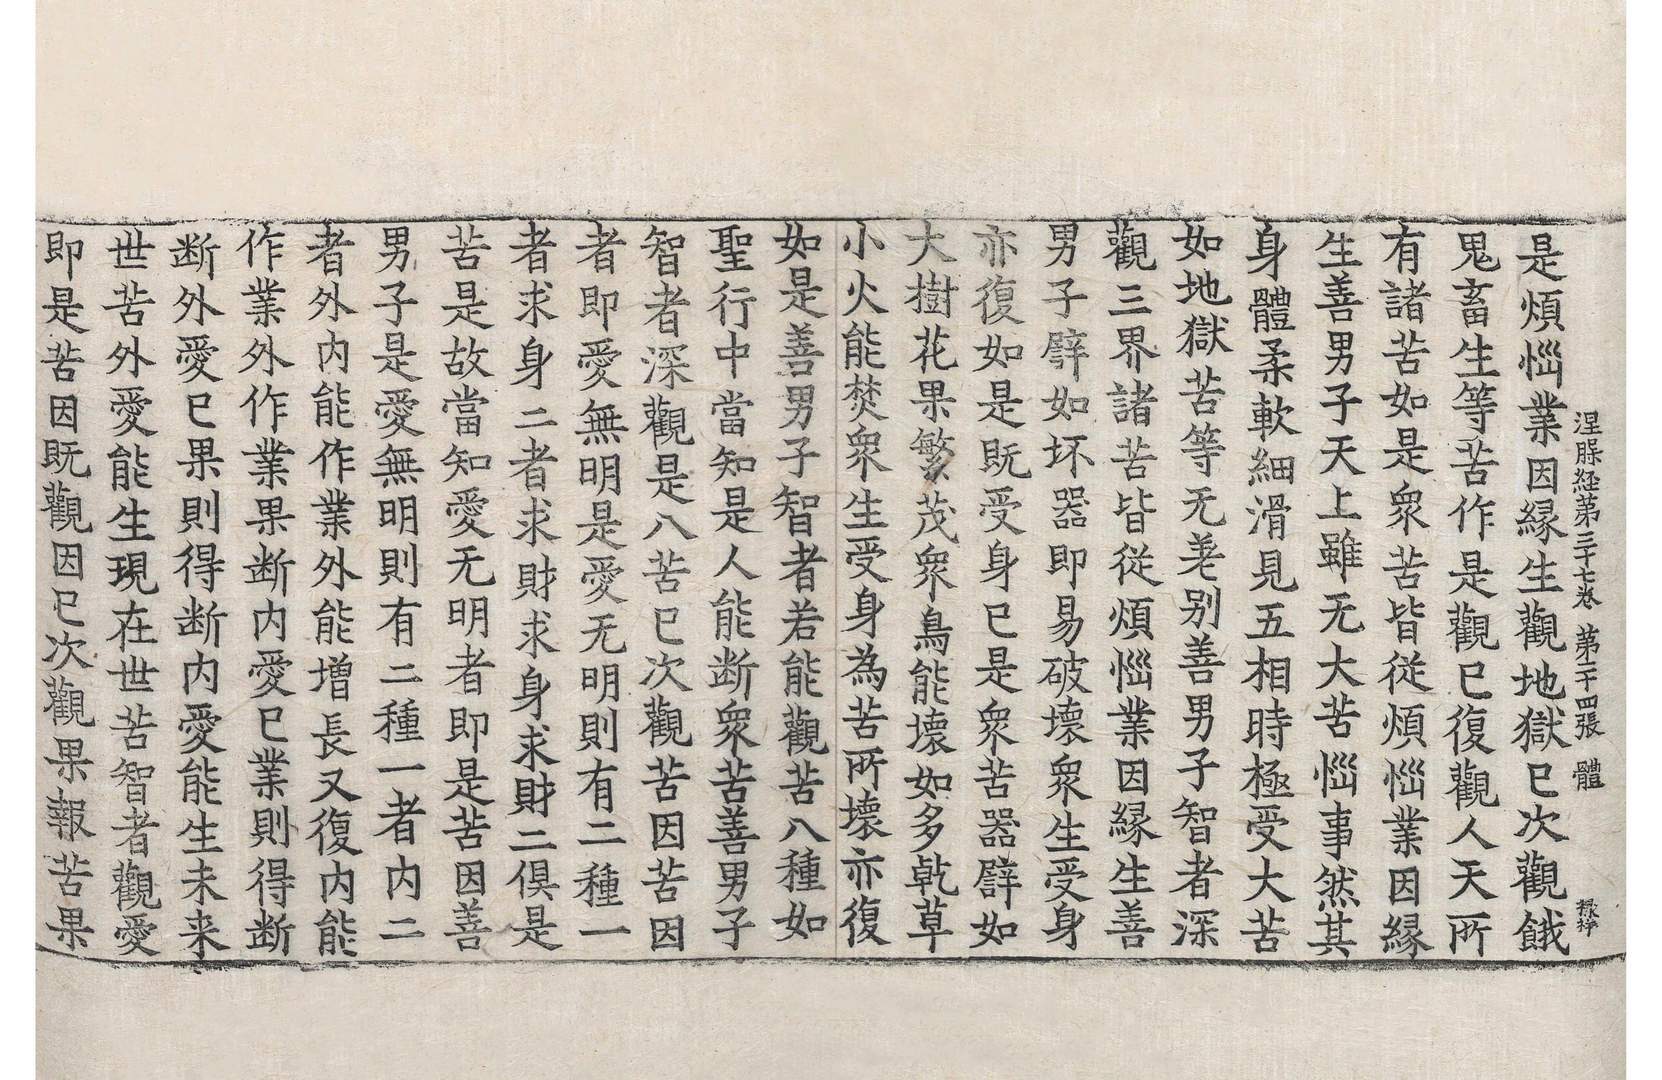 涅槃経第三十七巻 第二十四張 體 禄祥
是煩惱業因縁生觀地獄已次觀餓
鬼畜生等苦作是觀已復觀人天所
有諸苦如是衆苦皆從煩惱業因縁
生善男子天上雖无大苦惱事然其
身體柔軟細滑見五相時極受大苦
如地獄苦等无差别善男子智者深
觀三界諸苦皆從煩惱業因縁生善
男子譬如坏器即易破壊衆生受身
亦復如是既受身已是衆苦器譬如
大樹花果繁茂衆鳥能壊如多乹草
小火能焚衆生受身為苦所壊亦復
如是善男子智者若能觀苦八種如
聖行中當知是人能断衆苦善男子
智者深觀是八苦已次觀苦因苦因
者即愛無明是愛无明則有二種一
者求身二者求財求身求財二俱是
苦是故當知愛无明者即是苦因善
男子是愛無明則有二種一者内二
者外内能作業外能増長又復内能
作業外作業果断内愛已業則得断
断外愛已果則得断内愛能生未来
世苦外愛能生現在世苦智者觀愛
即是苦因既觀因已次觀果報苦果